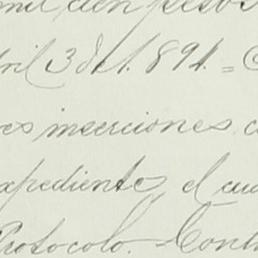 mil cien pesos
ril 3 de 1.891. = C
res inserciones c
xpediente, el cua
Protocolo. = Cont